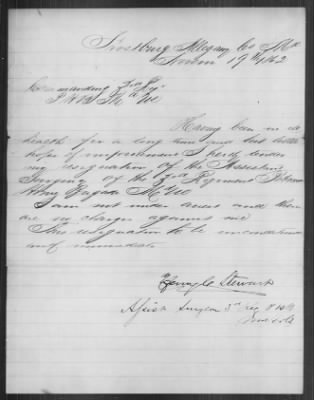 Frostburg Allegany Co Md
Novm 19th 1862
Commanding 3rd Rgt
P H B Md Vol
Having been in ill
health for a long time and but little
hope of improvement I hereby tender
my resignation of the Assistant
Surgeoncy of the 3rd Regiment Potomac
Home Brigade Md Vol
I am not under arrest and there
are no charges against me
This resignation to be unconditional
and immediate
Stewart
Assist Surgeon 3d Reg P H B